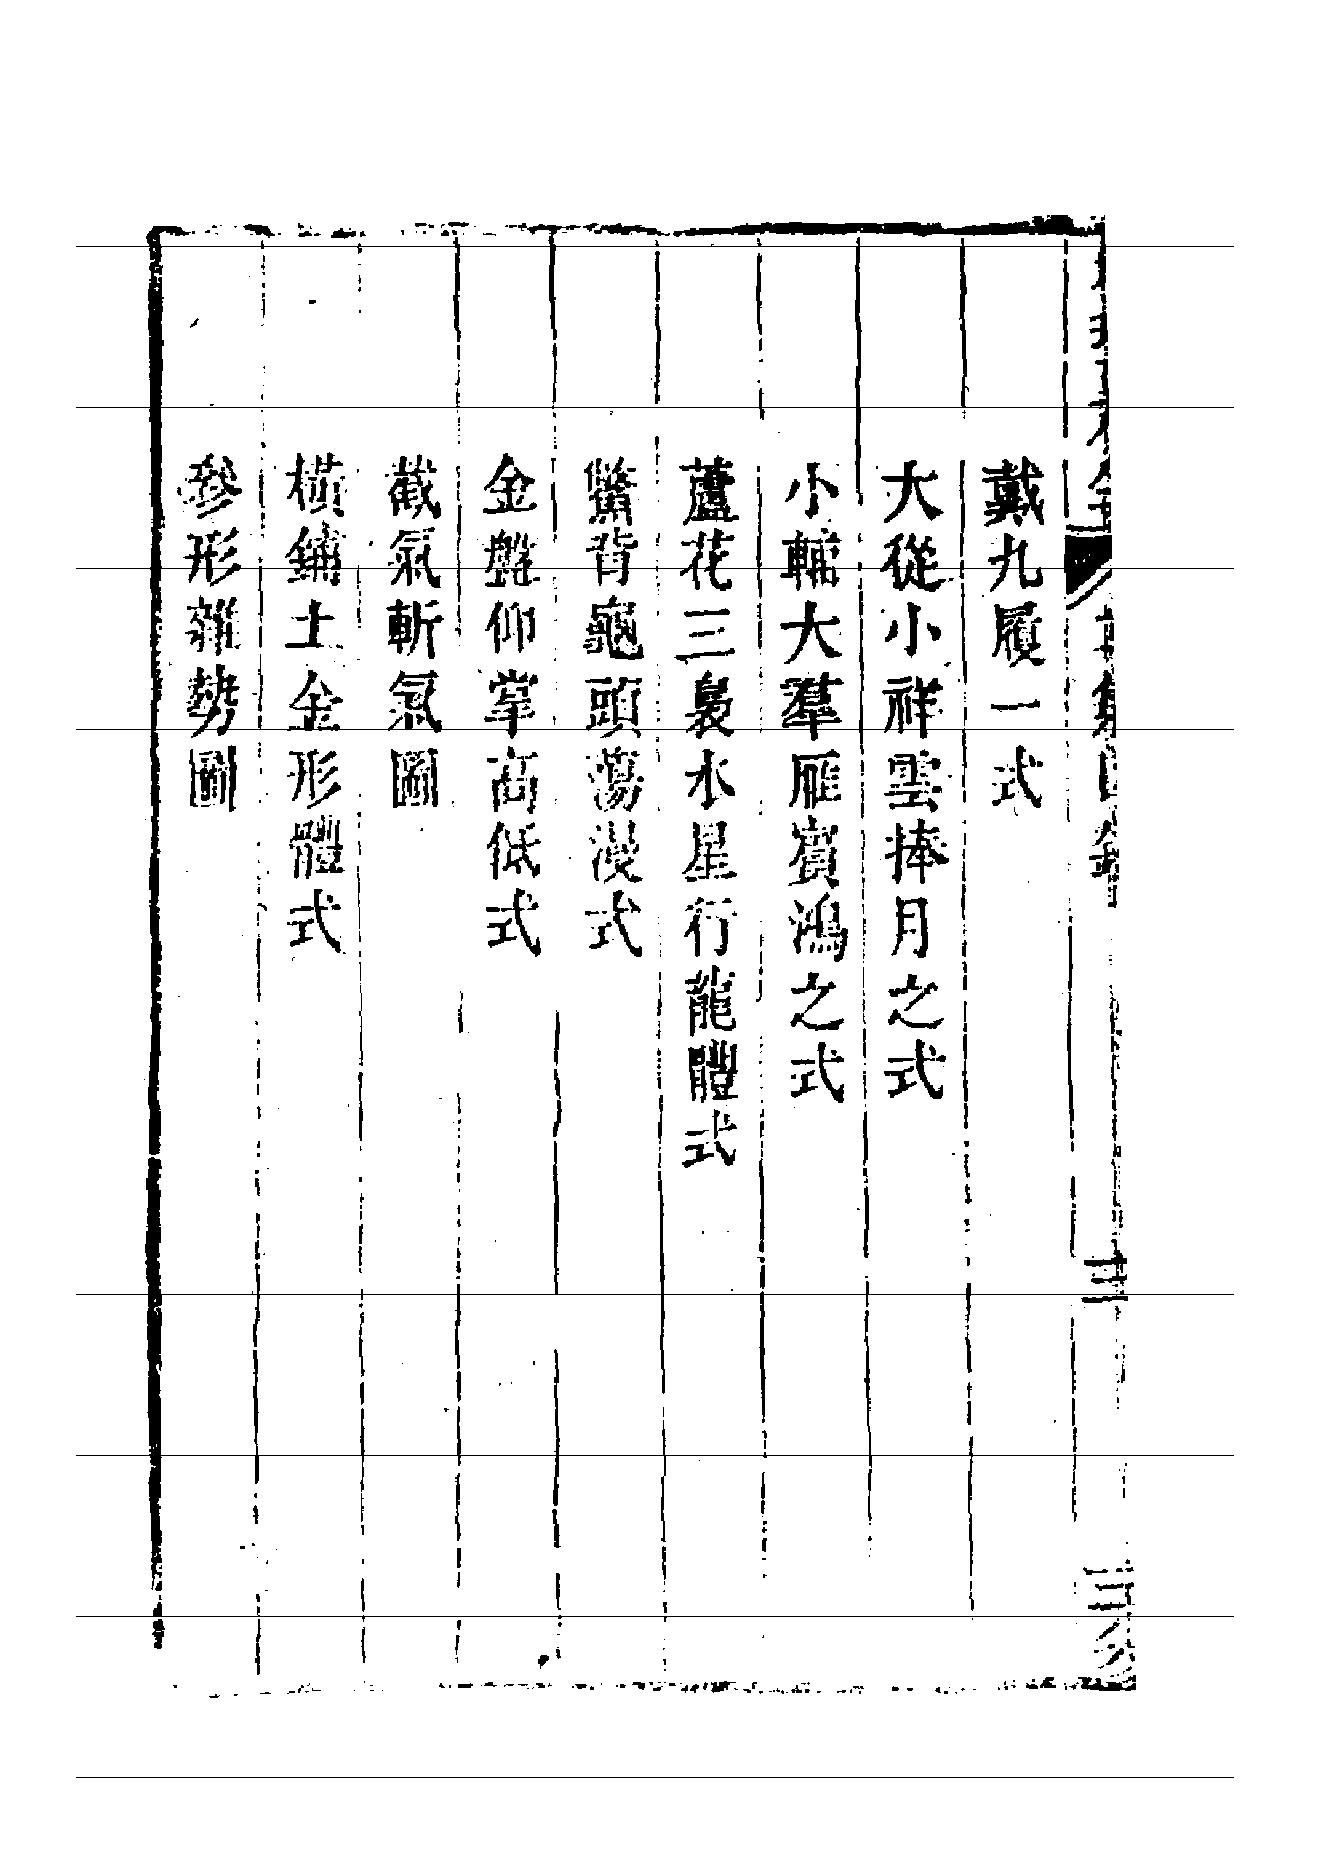 戴九履一式
大從小祥雲捧月之式
小輔大羣雁賓鴻之式
蘆花三裊水星行龍體式
鱉背龜頭蕩漫式
金盤仰掌高低式
截氣斬氣圖
橫鋪土金形體式
參形雜勢圖
三